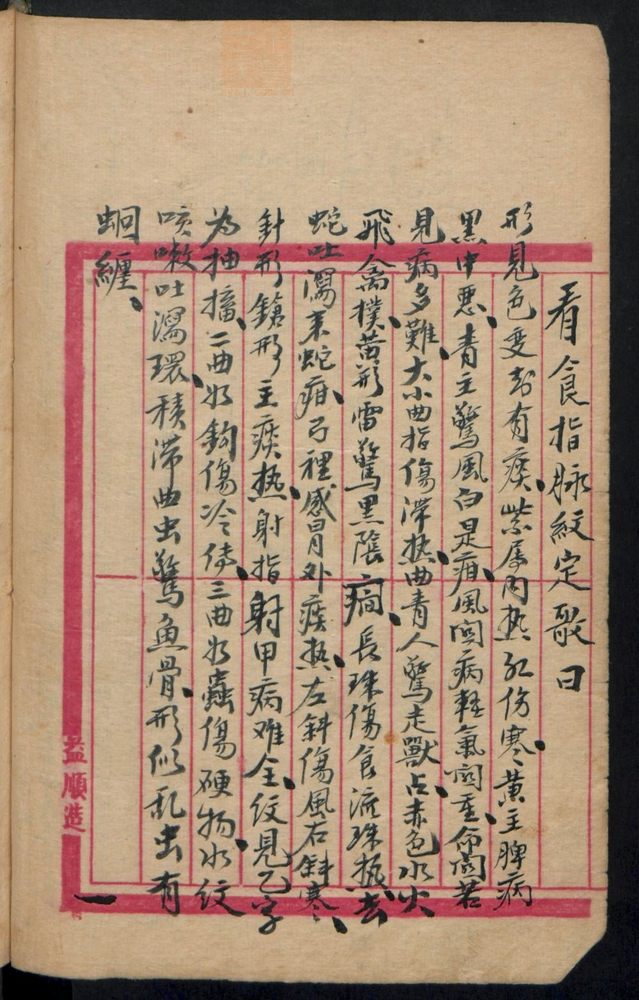 看食指脉紋定歌曰
形見色变即有痰、紫属内热紅伤寒、黄主脾病
黒中惡、青主驚風白是疳、風関病軽氣関重、命関若
見病多難、大小曲指傷滞热曲青人驚走獸占赤色水火
飛禽撲、黄形雷驚黒陰癇、長珠傷食流珠热、去
蛇吐瀉来蛇疳、弓裡感冒外痰热、左斜傷風右斜寒、
針形鎗形主痰热、射指射甲病难全、紋見乙字
为抽搐、二曲如鈎傷冷、三曲如蟲傷硬物、水紋
咳嗽吐瀉環積滞曲虫驚魚骨、形似乱虫有
蛔纏、
益順造